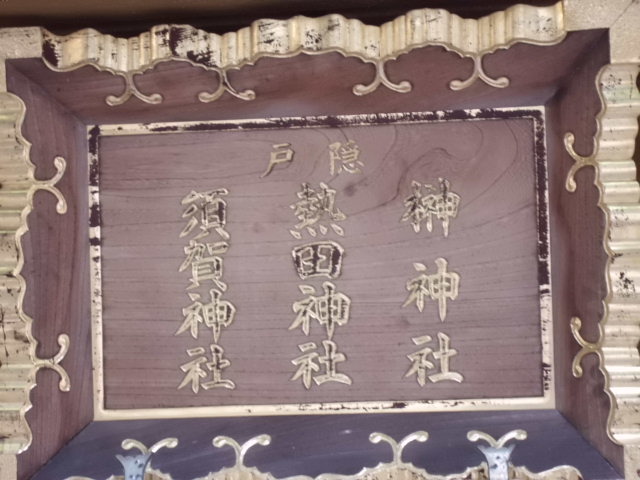 隠戸
榊神社
熱田神社
須賀神社